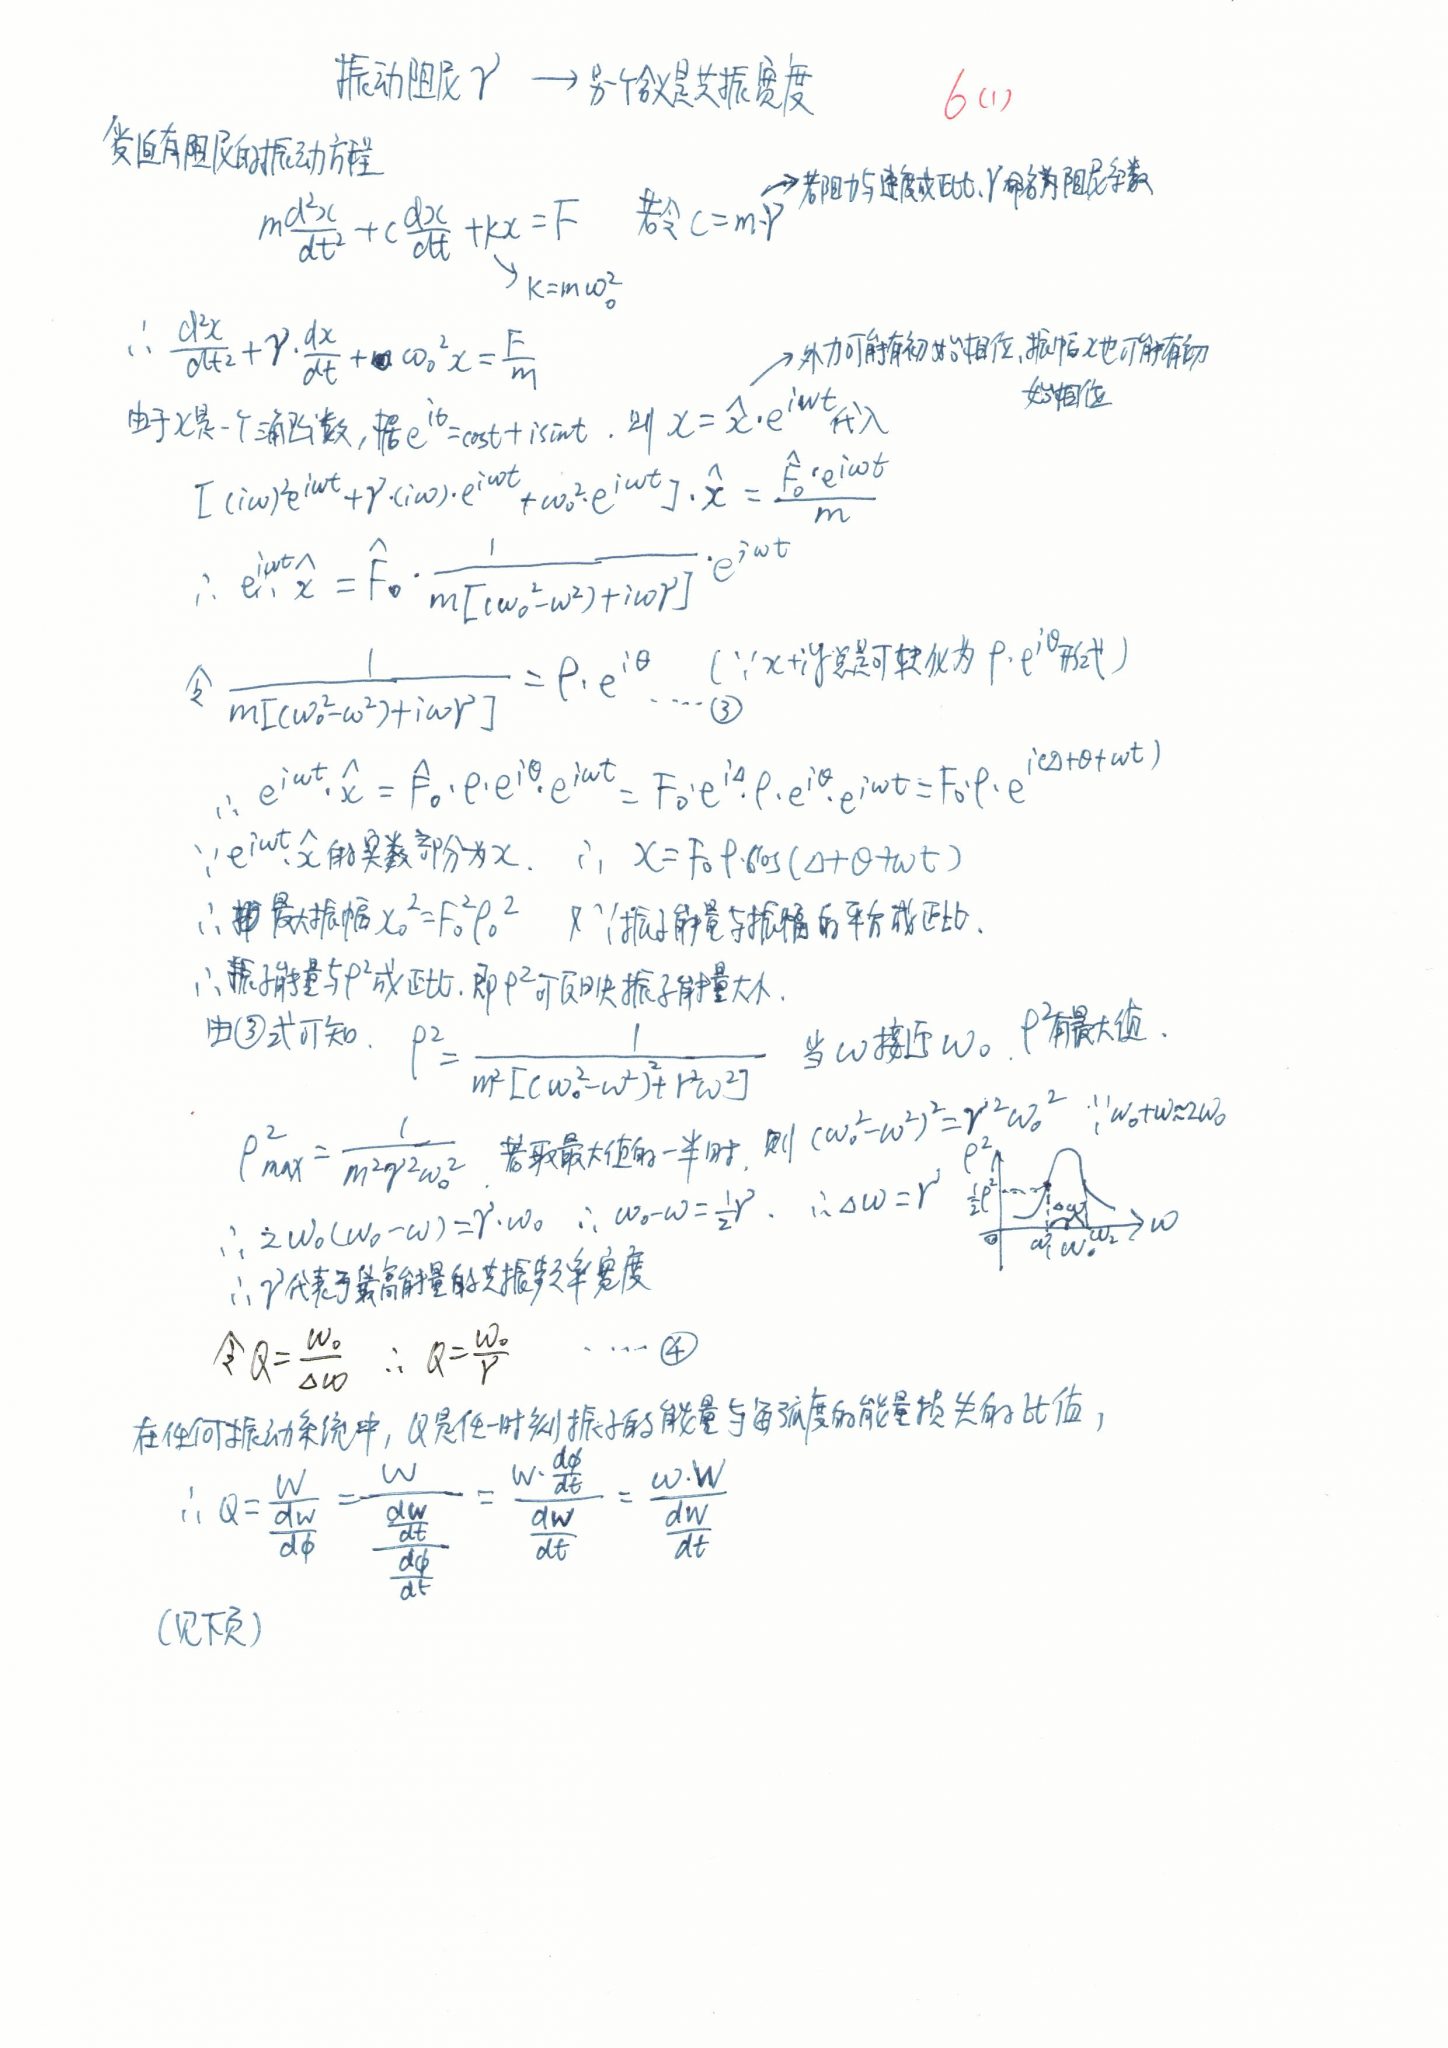 振动阻尼γ → 另一个含义是共振宽度
6(1)
受迫有阻尼的振动方程
m d²x/dt² + c dx/dt + kx = F 若令 c = m·γ → 若阻力与速度成正比、γ命名为阻尼系数
k = mω₀²
∴ d²x/dt² + γ·dx/dt + ω₀²x = F/m
→ 外力可能有初始相位、振幅x也可能有初始相位
由于x是一个三角函数, 据 e^{iθ} = cost + isint . 则 x = x̂·e^{iωt} 代入
[(iω)²e^{iωt} + γ·(iω)·e^{iωt} + ω₀²·e^{iωt}]·x̂ = F̂₀·e^{iωt}/m
∴ e^{iωt}·x̂ = F̂₀ · 1/(m[(ω₀²-ω²)+iωγ]) · e^{iωt}
令 1/(m[(ω₀²-ω²)+iωγ]) = ρ·e^{iθ} ……③ (∵ x+iy总是可转化为 ρ·e^{iθ}形式)
∴ e^{iωt}·x̂ = F̂₀·ρ·e^{iθ}·e^{iωt} = F₀·e^{iΔ}·ρ·e^{iθ}·e^{iωt} = F₀·ρ·e^{i(Δ+θ+ωt)}
∵ e^{iωt}·x̂ 的实数部分为x. ∴ x = F₀ρ·cos(Δ+θ+ωt)
∴ 最大振幅 x₀² = F₀²ρ₀² 又∵振子能量与振幅的平方成正比.
∴ 振子能量与ρ²成正比. 即ρ²可反映振子能量大小.
由③式可知. ρ² = 1/(m²[(ω₀²-ω²)²+γ²ω²]) 当ω接近ω₀, ρ²有最大值.
ρ²max = 1/(m²γ²ω₀²) . 若取最大值的一半时, 则 (ω₀²-ω²)² = γ²ω₀² ∵ω₀+ω≈2ω₀
∴ 2ω₀(ω₀-ω) = γ·ω₀ ∴ ω₀-ω = ½γ. ∴ Δω = γ
ρ² ½ρ² Δω 0 ω₁ ω₀ ω₂ ω
∴ γ代表了最高能量的共振频率宽度
令 Q = ω₀/Δω ∴ Q = ω₀/γ ……④
在任何振动系统中, Q是任一时刻振子的能量与每弧度的能量损失的比值,
∴ Q = W/(dW/dφ) = W/((dW/dt)/(dφ/dt)) = (W·dφ/dt)/(dW/dt) = (ω·W)/(dW/dt)
(见下页)